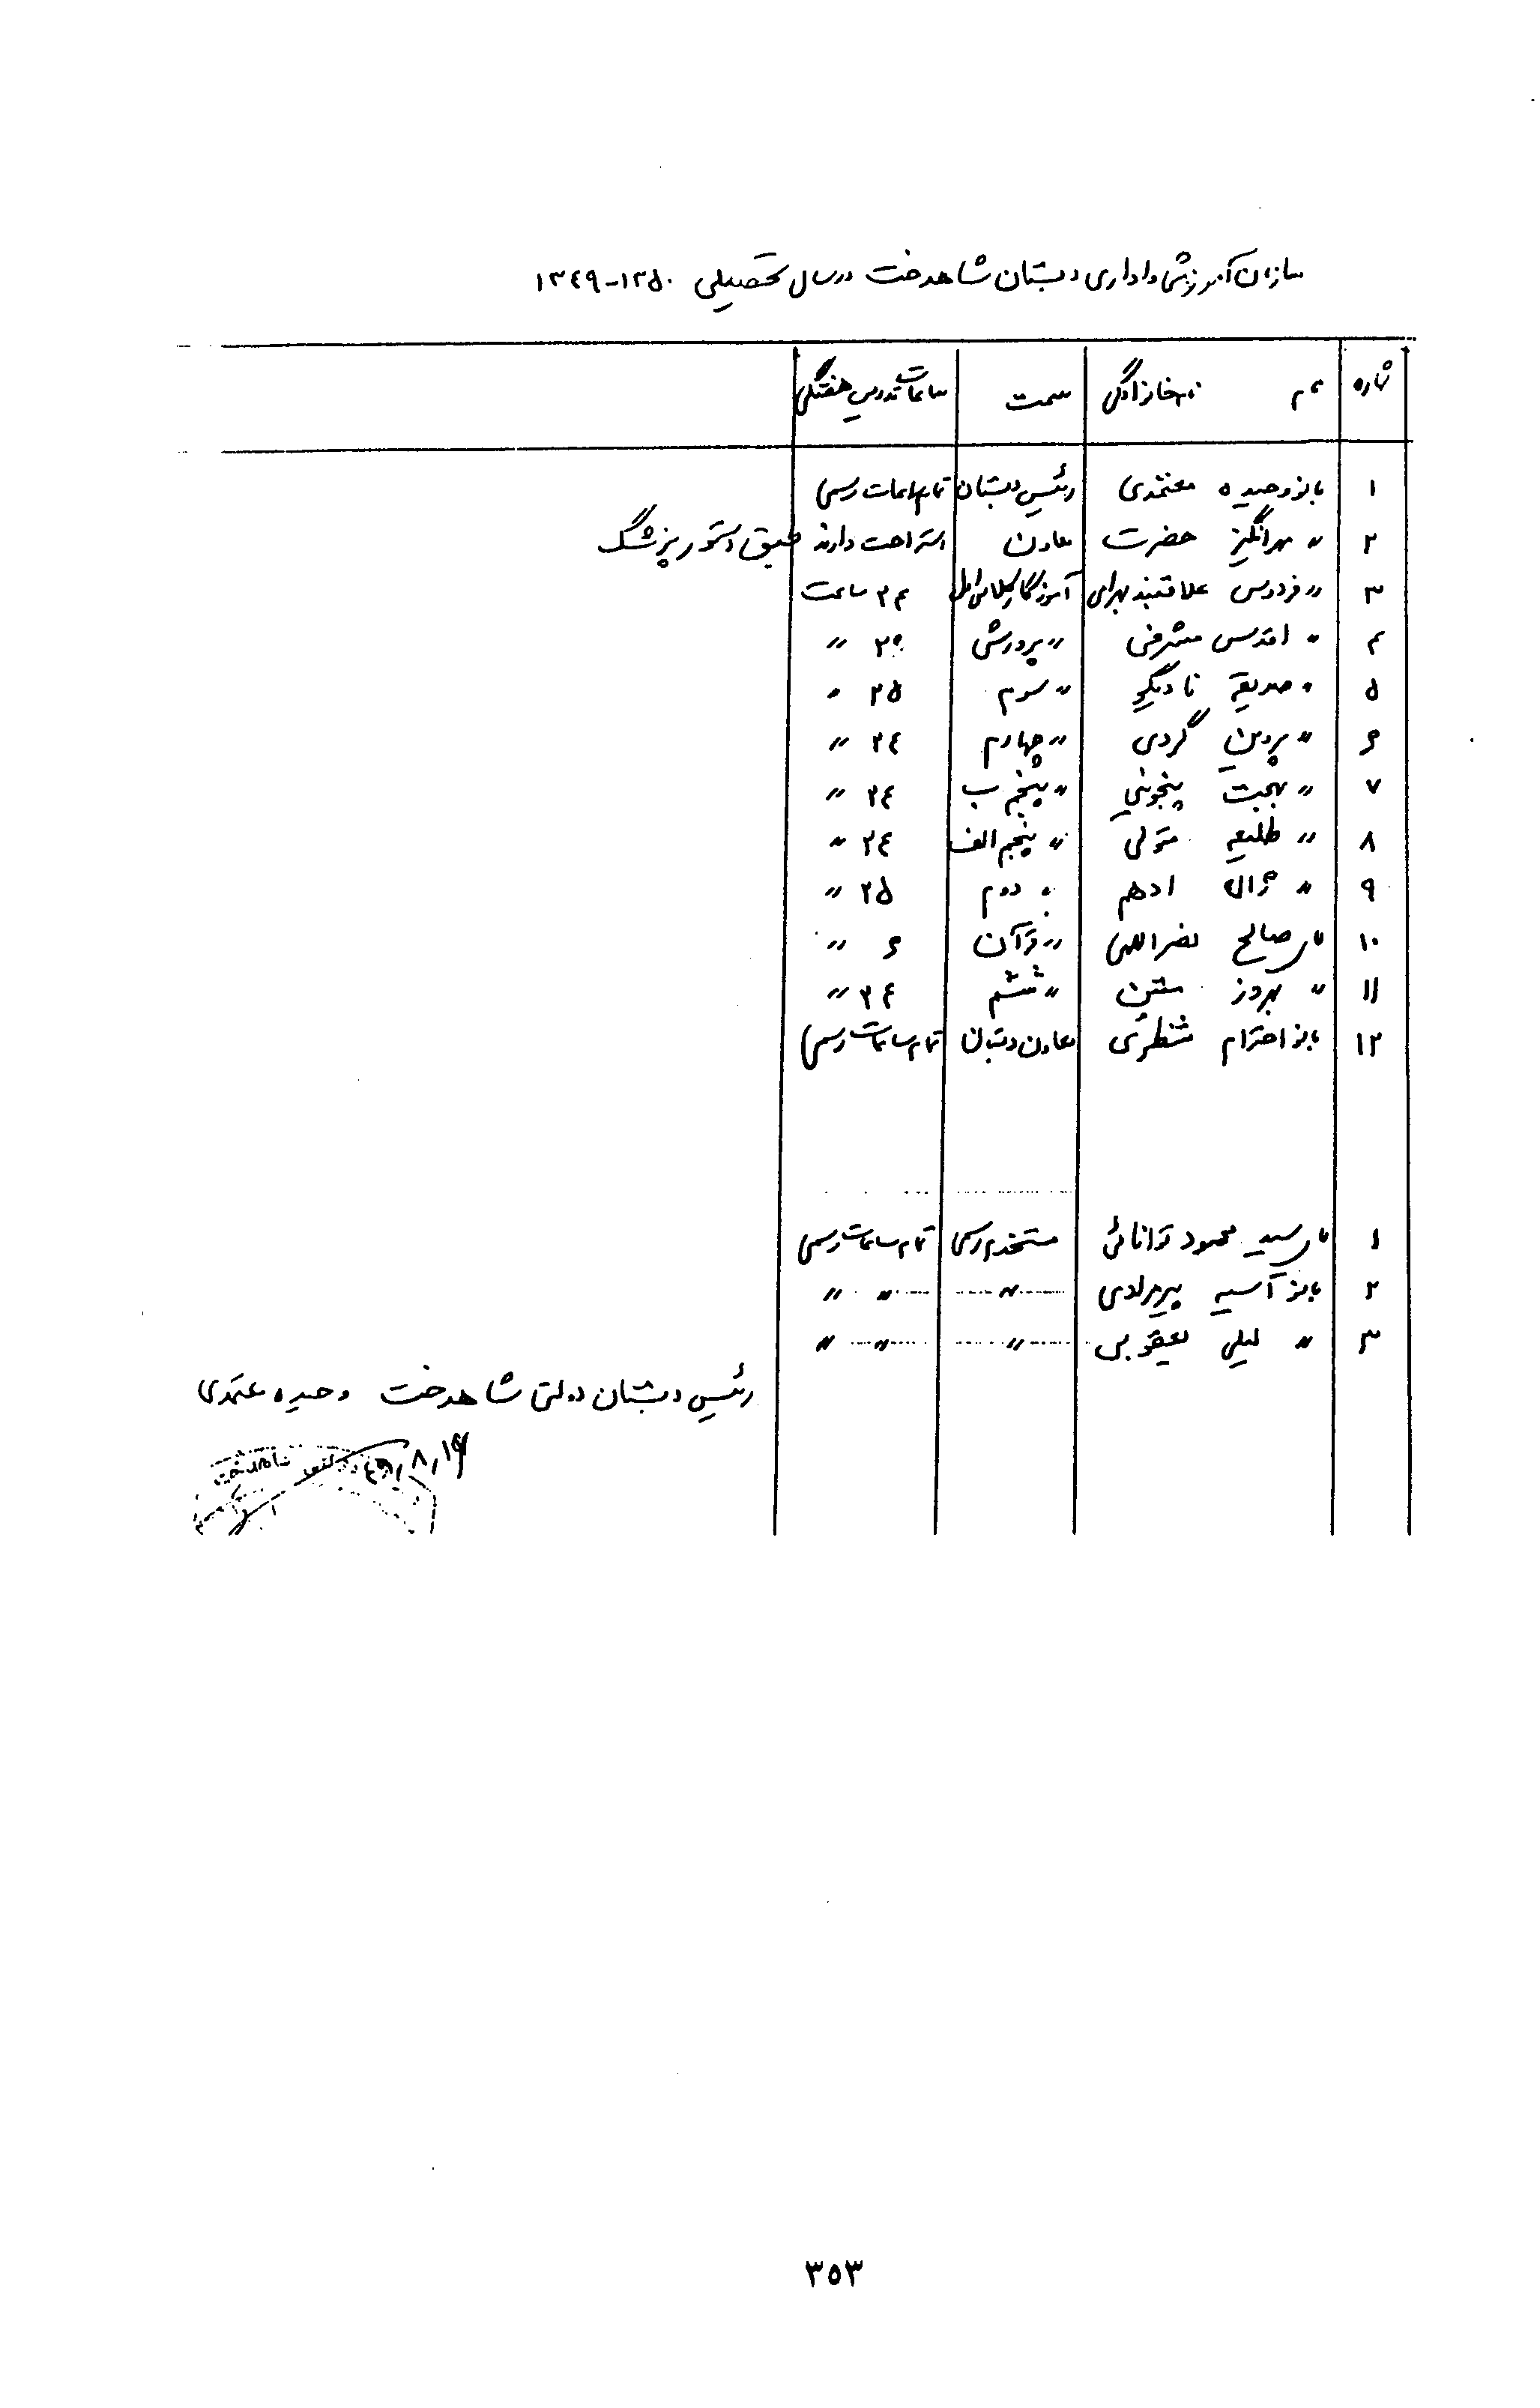 سازمان آموزشی و اداری دبستان شاهدخت در سال تحصیلی ۱۳۵۰-۱۳٤۹
شماره نام نام خانوادگی سمت ساعات تدریس هفتگی
۱ بانو وحیده معتمدی رئیس دبستان تمام ساعات رسمی
۲ " مهرانگیز حضرت معاون استراحت دارند طبق دستور پزشک
۳ " فردوس علاقبند بهرامی آموزگار کلاس اول ۲۴ ساعت
۴ " اقدس مشرفی " پرورشی "
۵ " صدیقه نادیگو " سوم ۲۵ "
۶ " پروین گردی " چهارم ۲٤ "
۷ " بهجت پنجونی " پنجم ب ۲٤ "
۸ " طلیعه متولی " پنجم الف ۲٤ "
۹ " ژاله ادهم " دوم ۲۵ "
۱۰ آقای صالح نصراللهی " قرآن ۶ "
۱۱ " بهروز متین " ششم ۲٤ "
۱۲ بانو احترام منتظری معاون دبستان تمام ساعات رسمی
۱ آقای سید محمود توانائی مستخدم رسمی تمام ساعات رسمی
۲ بانو آسیه پیرمرادی " " "
۳ " لیلی یعقوبی " " "
رئیس دبستان دولتی شاهدخت وحیده معتمدی
دولتی شاهدخت
۳۵۳